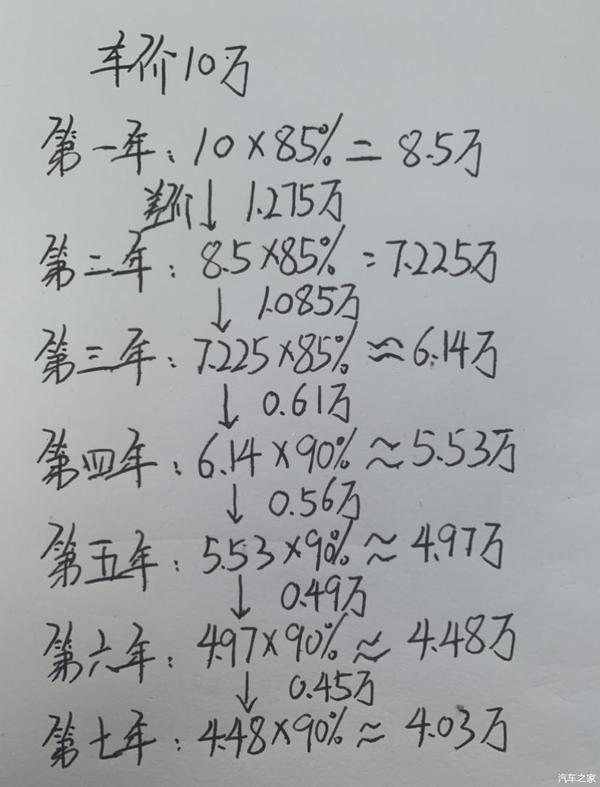 车价10万
第一年：10×85%=8.5万
差价↓1.275万
第二年：8.5×85%=7.225万
↓1.085万
第三年：7.225×85%≈6.14万
↓0.61万
第四年：6.14×90%≈5.53万
↓0.56万
第五年：5.53×90%≈4.97万
↓0.49万
第六年：4.97×90%≈4.48万
↓0.45万
第七年：4.48×90%≈4.03万
汽车之家